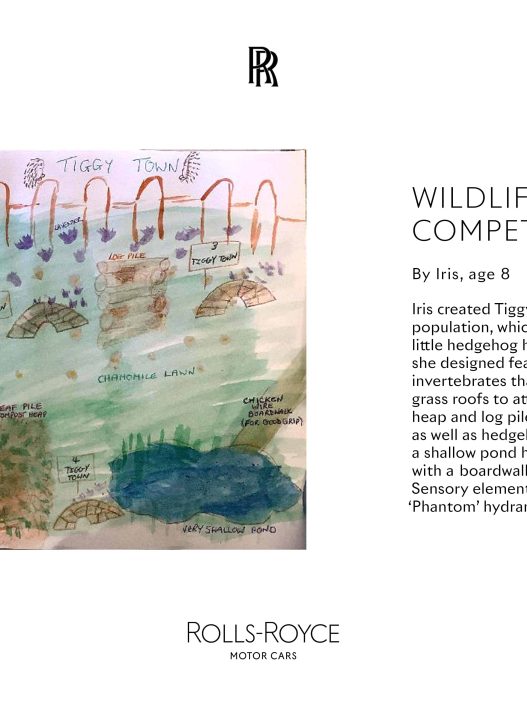 RR
TIGGY TOWN
LAVENDER
LOG PILE
3
TIGGY TOWN
CHAMOMILE LAWN
CHICKEN
WIRE
BOARDWALK
(FOR GOOD GRIP)
EAF PILE
OMPOST HEAP
4
TIGGY
TOWN
VERY SHALLOW POND
WILDLIF
COMPET
By Iris, age 8
Iris created Tiggy
population, whic
little hedgehog h
she designed fea
invertebrates tha
grass roofs to att
heap and log pile
as well as hedgeh
a shallow pond h
with a boardwalk
Sensory element
‘Phantom’ hydran
ROLLS-ROYCE
MOTOR CARS